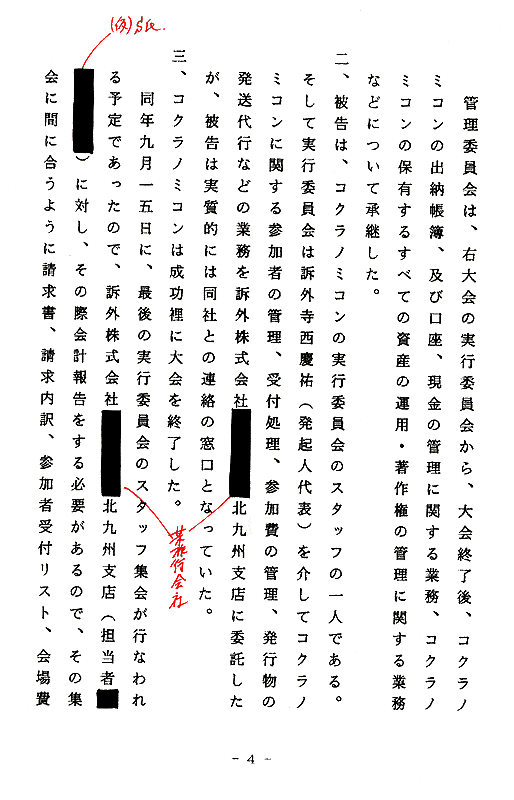 管理委員会は、右大会の実行委員会から、大会終了後、コクラノ
ミコンの出納帳簿、及び口座、現金の管理に関する業務、コクラノ
ミコンの保有するすべての資産の運用・著作権の管理に関する業務
などについて承継した。
二、被告は、コクラノミコンの実行委員会のスタッフの一人である。
そして実行委員会は訴外寺西慶祐（発起人代表）を介してコクラノ
ミコンに関する参加者の管理、受付処理、参加費の管理、発行物の
発送代行などの業務を訴外株式会社
北九州支店に委託した
が、被告は実質的には同社との連絡の窓口となっていた。
三、コクラノミコンは成功裡に大会を終了した。
同年九月一五日に、最後の実行委員会のスタッフ集会が行なわれ
る予定であったので、訴外株式会社
北九州支店（担当者
）に対し、その際会計報告をする必要があるので、その集
会に間に合うように請求書、請求内訳、参加者受付リスト、会場費
(仮)
某旅行会社
- 4 -